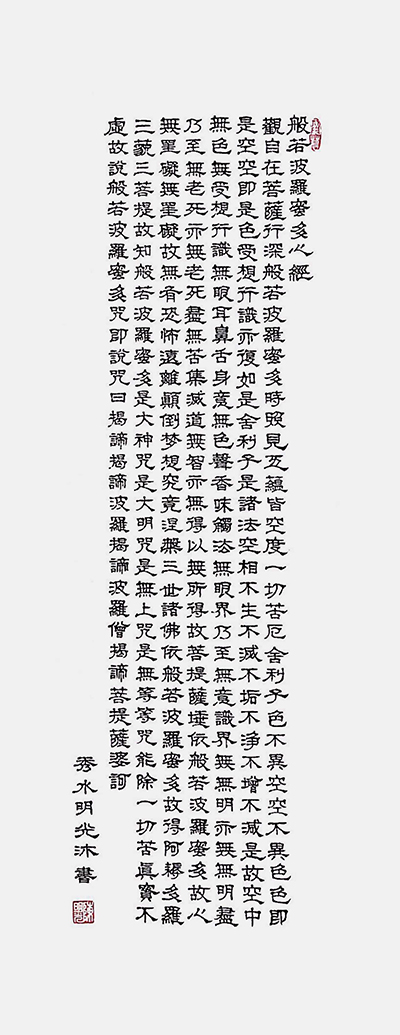 般若波羅蜜多心經
觀自在菩薩行深般若波羅蜜多時照見五蘊皆空度一切苦厄舍利子色不異空空不異色色即
是空空即是色受想行識亦復如是舍利子是諸法空相不生不滅不垢不淨不增不減是故空中
無色無受想行識無眼耳鼻舌身意無色聲香味觸法無眼界乃至無意識界無無明亦無無明盡
乃至無老死亦無老死盡無苦集滅道無智亦無得以無所得故菩提薩埵依般若波羅蜜多故心
無罣礙無罣礙故無有恐怖遠離顛倒梦想究竟涅槃三世諸佛依般若波羅蜜多故得阿耨多羅
三藐三菩提故知般若波羅蜜多是大神咒是大明咒是無上咒是無等等咒能除一切苦眞實不
虛故說般若波羅蜜多咒即說咒曰揭諦揭諦波羅揭諦波羅僧揭諦菩提薩婆訶
秀水明光沐書